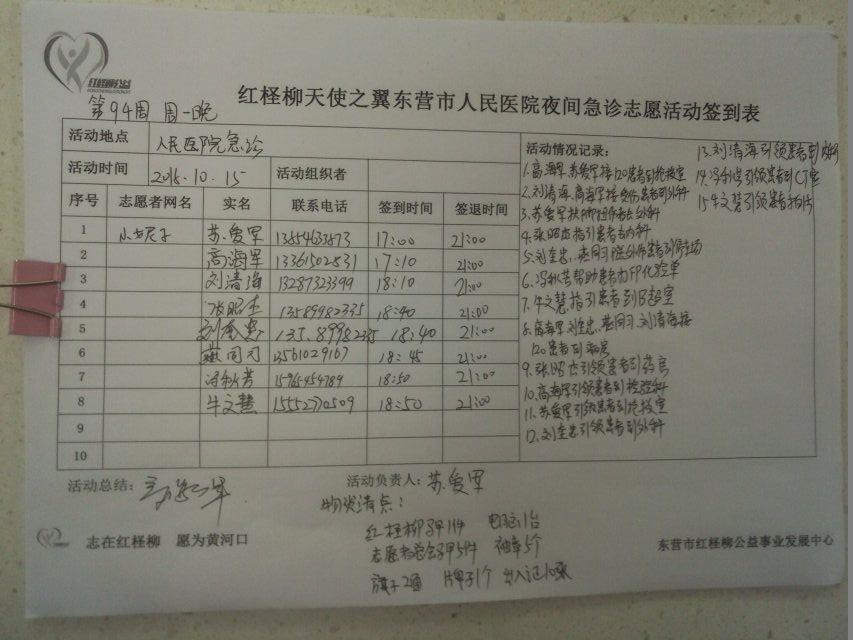 红柽柳公益
第94周 周一晚
红柽柳天使之翼东营市人民医院夜间急诊志愿活动签到表
活动地点 人民医院急诊
活动时间 2016.10.15 活动组织者
序号 志愿者网名 实名 联系电话 签到时间 签退时间
1 苏爱军 13854633873 17:00 21:00
2 高海军 13361502531 17:10 21:00
3 刘清海 13287323399 18:10 21:00
4 张昭杰 13589982335 18:40 21:00
5 135.89982335 18:40 21:00
6 13561029167 18:45 21:00
7 冯秋芳 15965454789 18:50 21:00
8 牛文慧 15552770509 18:50 21:00
9
10
活动情况记录:
1.高海军.苏爱军接120患者到抢救室
2.刘清海.高海军接受伤患者到外科
3.苏爱军扶脚扭伤者去外科
4.张昭杰指引患者去内科
5.刘
6.冯秋芳帮助患者打印化验单
7.牛文慧指引患者到B超室
8.高海军.刘 刘清海接
120患者到病房
9.张昭杰引领患者到药房
10.高海军引领患者到检验科
11.苏爱军引领患者到抢救室
12.刘 引领患者到外科
13.刘清海引领患者到内科
14.冯秋芳引领患者到CT室
15.牛文慧引领患者拍片
活动总结:
活动负责人: 苏爱军
物资清点:
红柽柳马甲1件 电脑1台
志愿者总会马甲5件 袖章5个
旗子2面 牌子1个 出入证10张
志在红柽柳 愿为黄河口
东营市红柽柳公益事业发展中心